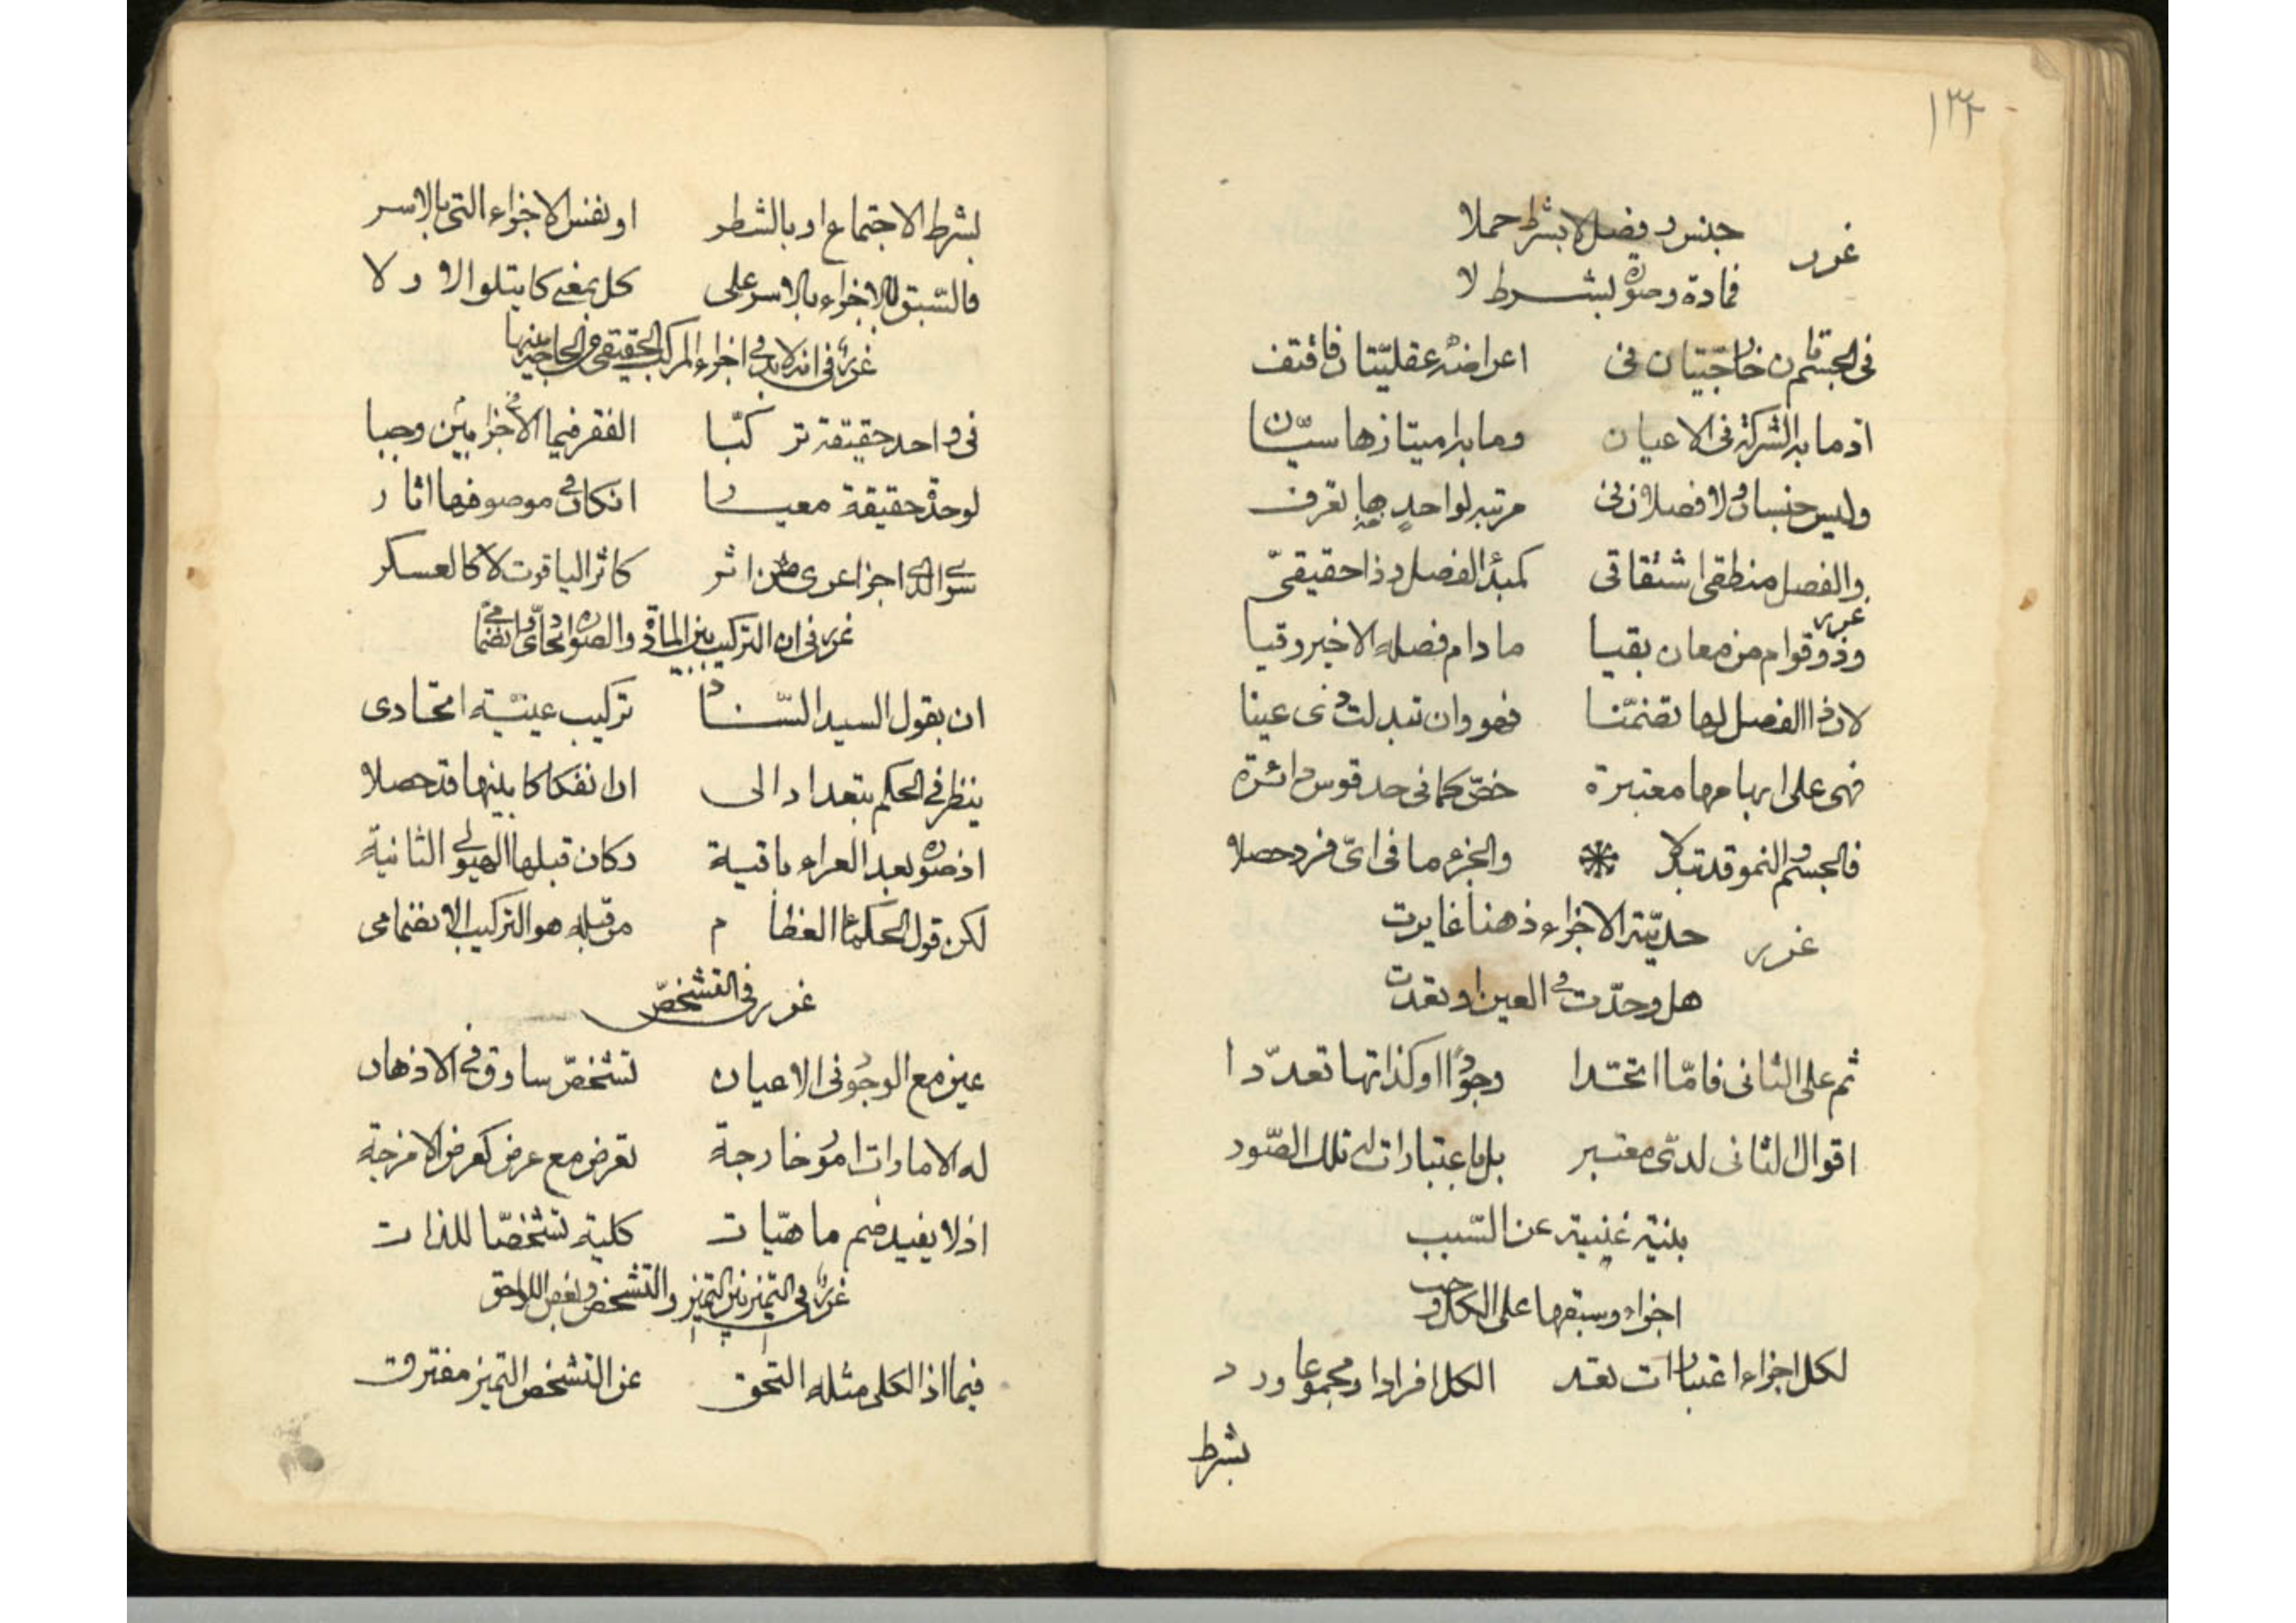 ۱۳۲
غرر جنس و فصل لا بشرط حملا
فمادة وصورة بشرط لا
فى الجسم تان خارجيتان فى اعراضه عقليتان فاقتف
اذ ما به الشركة فى الاعيان وما به امتيازها سيّان
وليس جنسان ولا فصلان فى مرتبه لواحد بها تعرف
والفصل منطقى اشتقاقى كمبدأ الفصل وذا حقيقىّ
غرر
وذو قوام من معان بقيا ما دام فصله الاخير وقيا
لان ذا الفصل لها تضمّنا فهو وان تبدلت ذى عينا
فهى على ابهامها معتبرة خصّ كما فى حد قوس دائرة
فالجسم والنمو قد تبدلا والجزء ما فى اىّ فرد حصلا
غرر حديّة الاجزاء ذهنا غايرت
هل وحدّت فى العين او تعددت
ثم على الثانى فامّا اتحّدا وجودا او كذاتها تعدّدا
اقوال الثانى لدىّ معتبر بل باعتبارات لى تلك الصّور
بنية غنية عن السّبب
اجزاء وسبقها على الكل وجب
لكل اجزاء اعتبارات تعد الكل افرادا ومجموعا ورد
بشرط
بشرط الاجتماع او بالشطر او نفس الاجزاء التى بالاسر
فالسّبق للاجزاء بالاسر على كل بمعنى كما يتلو الاولا
غرر فى انه لا بد فى اجزاء المركب الحقيقى من الحاجة بينها
فى واحد حقيقة تركّبا الفقر فيما الاجزاء بين وجبا
لوحدة حقيقة معيارا ان كان فى موصوفها اثار
سوى الذى اجزا عرى من اثر كاثر الياقوت لا كالعسكر
غرر فى ان التركيب بين المادة والصورة اتحادى او انضمامى
ان بقول السيد السّناد تركيب عينية اتحادى
ينظر فى الحكم بتعداد الى ان انفكاكا بينها قد حصلا
اذ صورة بعد العراء باقية وكان قبلها الهيولى الثانية
لكن قول الحكماء العظام من قبله هو التركيب الانضمامى
غرر فى التشخصّ
عين مع الوجود فى الاعيان تشخصّ ساوق فى الاذهان
له الامارات امور خارجة تعرض مع عرض كعرض الامزجة
اذ لا يفيد ضم ماهيّات كلية تشخصّا للذات
غرر فى التميز بين التميز والتشخص وبعض اللواحق
فيما اذ الكلى مثله التحق عن التشخص التميز مفترق